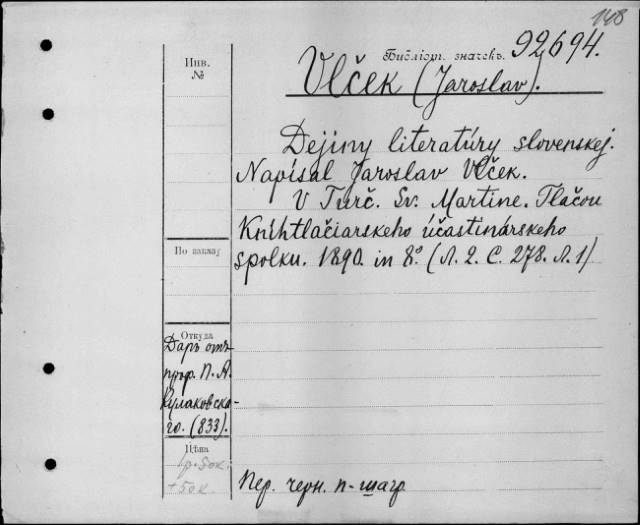 148
Инв.
№
Библіот. значекъ. 92694.
Vlček (Jaroslav).
Dejiny literatúry slovenskej.
Napísal Jaroslav Vlček.
V Turč. Sv. Martine. Tlačou
Kníhtlačiarskeho účastinárskeho
spolku. 1890. in 8° (Л. 2. С. 278. Л. 1)
По заказу
Откуда
Даръ отъ
проф. П. А.
Кулаковска-
го. (833).
Цѣна
1р. 50к.
+50к
Пер. черн. п-шагр